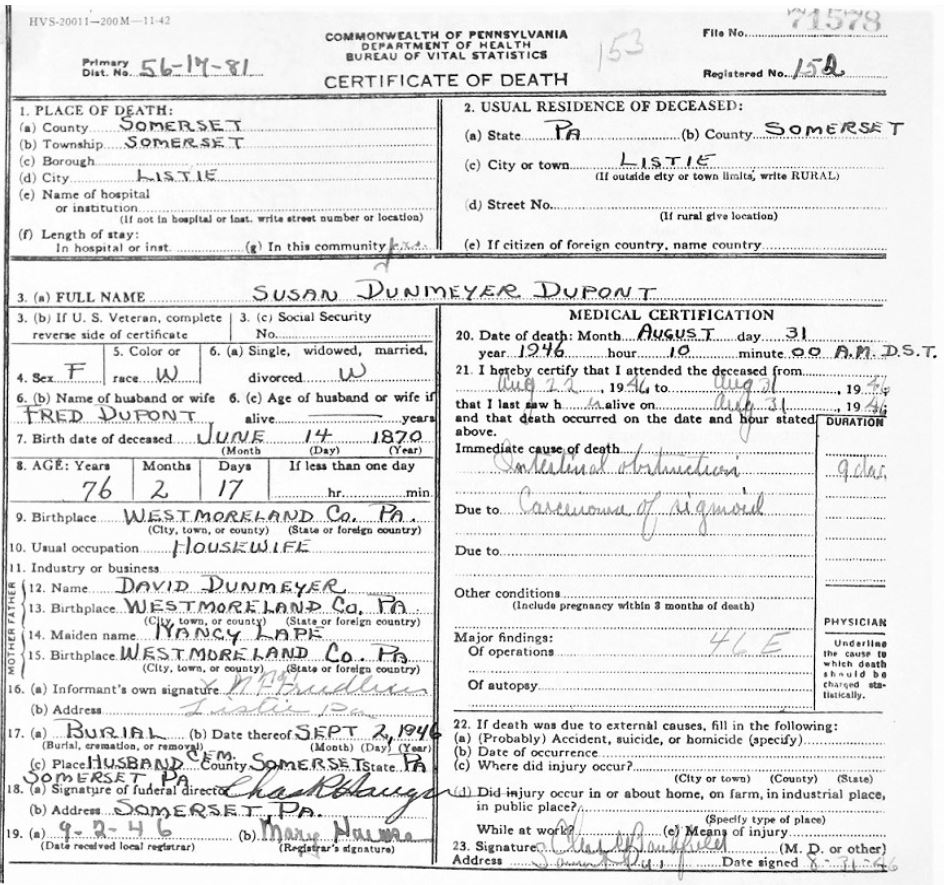 HVS-20011—200M—11-42
71578
COMMONWEALTH OF PENNSYLVANIA
DEPARTMENT OF HEALTH
BUREAU OF VITAL STATISTICS
CERTIFICATE OF DEATH
153
File No.
Primary Dist. No. 56-17-81
Registered No. 152
1. PLACE OF DEATH:
(a) County SOMERSET
(b) Township SOMERSET
(c) Borough
(d) City LISTIE
(e) Name of hospital
or institution
(If not in hospital or inst. write street number or location)
(f) Length of stay:
In hospital or inst. (g) In this community
2. USUAL RESIDENCE OF DECEASED:
(a) State PA (b) County SOMERSET
(c) City or town LISTIE
(If outside city or town limits, write RURAL)
(d) Street No.
(If rural give location)
(e) If citizen of foreign country, name country
3. (a) FULL NAME SUSAN DUNMEYER DUPONT
3. (b) If U. S. Veteran, complete
reverse side of certificate
3. (c) Social Security
No.
4. Sex F
5. Color or
race W
6. (a) Single, widowed, married,
divorced W
6. (b) Name of husband or wife
FRED DUPONT
6. (c) Age of husband or wife if
alive years
7. Birth date of deceased JUNE 14 1870
(Month (Day) (Year)
8. AGE: Years Months Days If less than one day
76 2 17 hr. min.
9. Birthplace WESTMORELAND CO. PA.
(City, town, or county) (State or foreign country)
10. Usual occupation HOUSEWIFE
11. Industry or business
FATHER
12. Name DAVID DUNMEYER
13. Birthplace WESTMORELAND CO. PA
(City, town, or county) (State or foreign country)
MOTHER
14. Maiden name NANCY LAPE
15. Birthplace WESTMORELAND CO. PA
(City, town, or county) (State or foreign country)
16. (a) Informant's own signature
(b) Address Listie Pa
17. (a) BURIAL (b) Date thereof SEPT 2, 1946
(Burial, cremation, or removal) (Month) (Day) (Year)
(c) Place HUSBAND CEM. County SOMERSET State PA
SOMERSET PA
18. (a) Signature of funeral director
(b) Address SOMERSET PA.
19. (a) 9-2-46 (b) Mary
(Date received local registrar) (Registrar's signature)
MEDICAL CERTIFICATION
20. Date of death: Month AUGUST day 31
year 1946 hour 10 minute 00 A.M. D.S.T.
21. I hereby certify that I attended the deceased from
Aug 22, 1946 to Aug 31, 1946
that I last saw h er alive on Aug 31, 1946
and that death occurred on the date and hour stated
above.
DURATION
Immediate cause of death
Intestinal obstruction 9 das.
Due to Carcinoma of sigmoid
Due to
Other conditions
(Include pregnancy within 3 months of death)
Major findings:
Of operations 46 E
Of autopsy
PHYSICIAN
Underline
the cause to
which death
should be
charged sta-
tistically.
22. If death was due to external causes, fill in the following:
(a) (Probably) Accident, suicide, or homicide (specify)
(b) Date of occurrence
(c) Where did injury occur?
(City or town) (County) (State)
(d) Did injury occur in or about home, on farm, in industrial place,
in public place?
(Specify type of place)
While at work? (e) Means of injury
23. Signature (M. D. or other)
Address Date signed 8-31-46